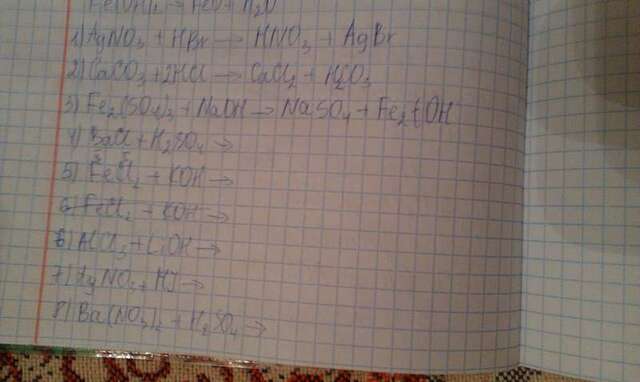 Fe(OH)₂ → FeO + H₂O
1) AgNO₃ + HBr → HNO₃ + AgBr
2) CaCO₃ + 2HCl → CaCl₂ + H₂CO₃
3) Fe₂(SO₄)₃ + NaOH → NaSO₄ + Fe₂(OH
4) BaCl + H₂SO₄ →
5) FeCl₂ + KOH →
6) FeCl₂ + KOH →
6) AlCl₃ + LiOH →
7) AgNO₃ + HJ →
8) Ba(NO₃)₂ + H₂SO₄ →